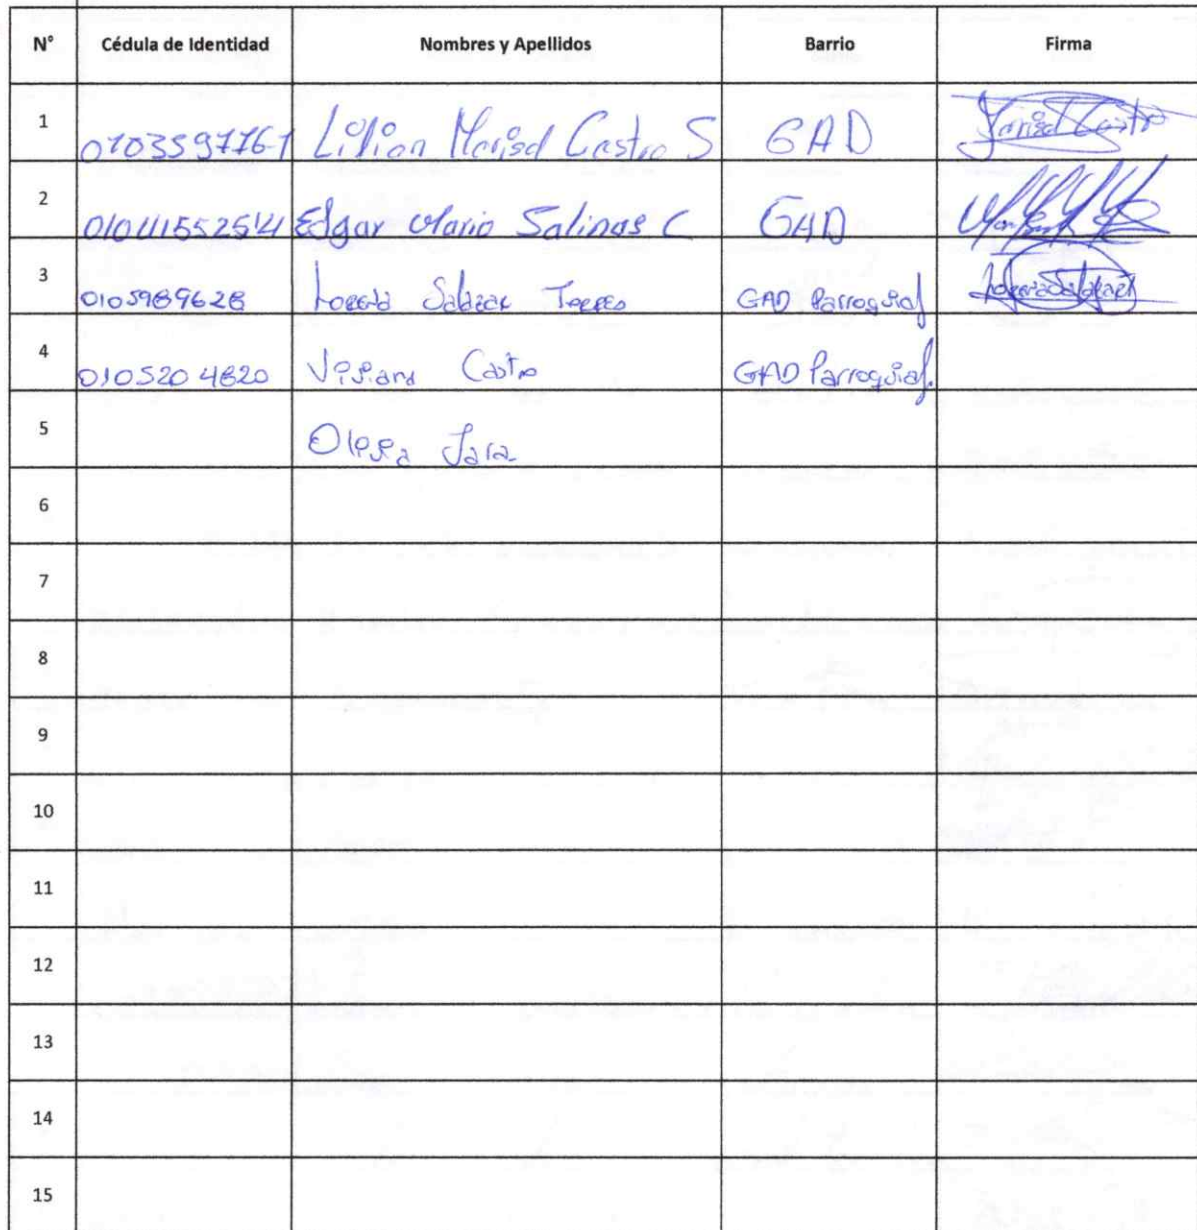 N° Cédula de Identidad Nombres y Apellidos Barrio Firma
1 0103597761 Lilian Marisol Castro S GAD Marisol Castro
2 Edgar Mario Salinas C GAD
3 0105989628 Lorena Salazar Torres GAD Parroquial Lorena Salazar
4 0105204820 Viviana Castro GAD Parroquial.
5 Olivia Jara
6
7
8
9
10
11
12
13
14
15